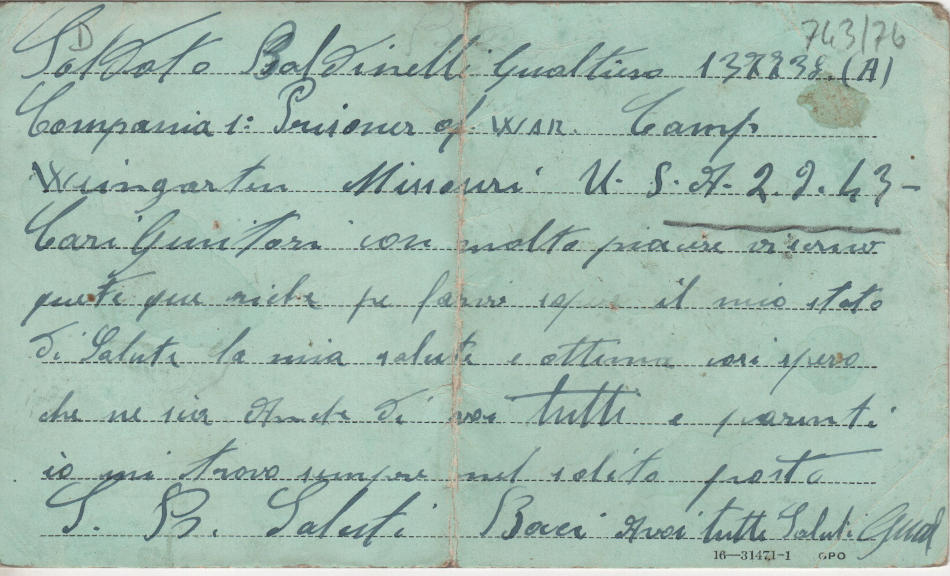 D
743/76
Soldato Baldinelli Gualtiero (A)
Compania 1: Prisoner of WAR. Camp
Weingarten Missouri U. S. A. 2. 9. 43-
Cari Genitori con molto piacere vi scrivo
queste que riche pe farvi il mio stato
di Salute la mia salute e ottima cosi spero
che ne sia Anche di voi tutti e parenti
io mi trovo sempre nel solito posto
S. B. Saluti Baci Avoi tutti Saluti Gual
16—31471-1 GPO